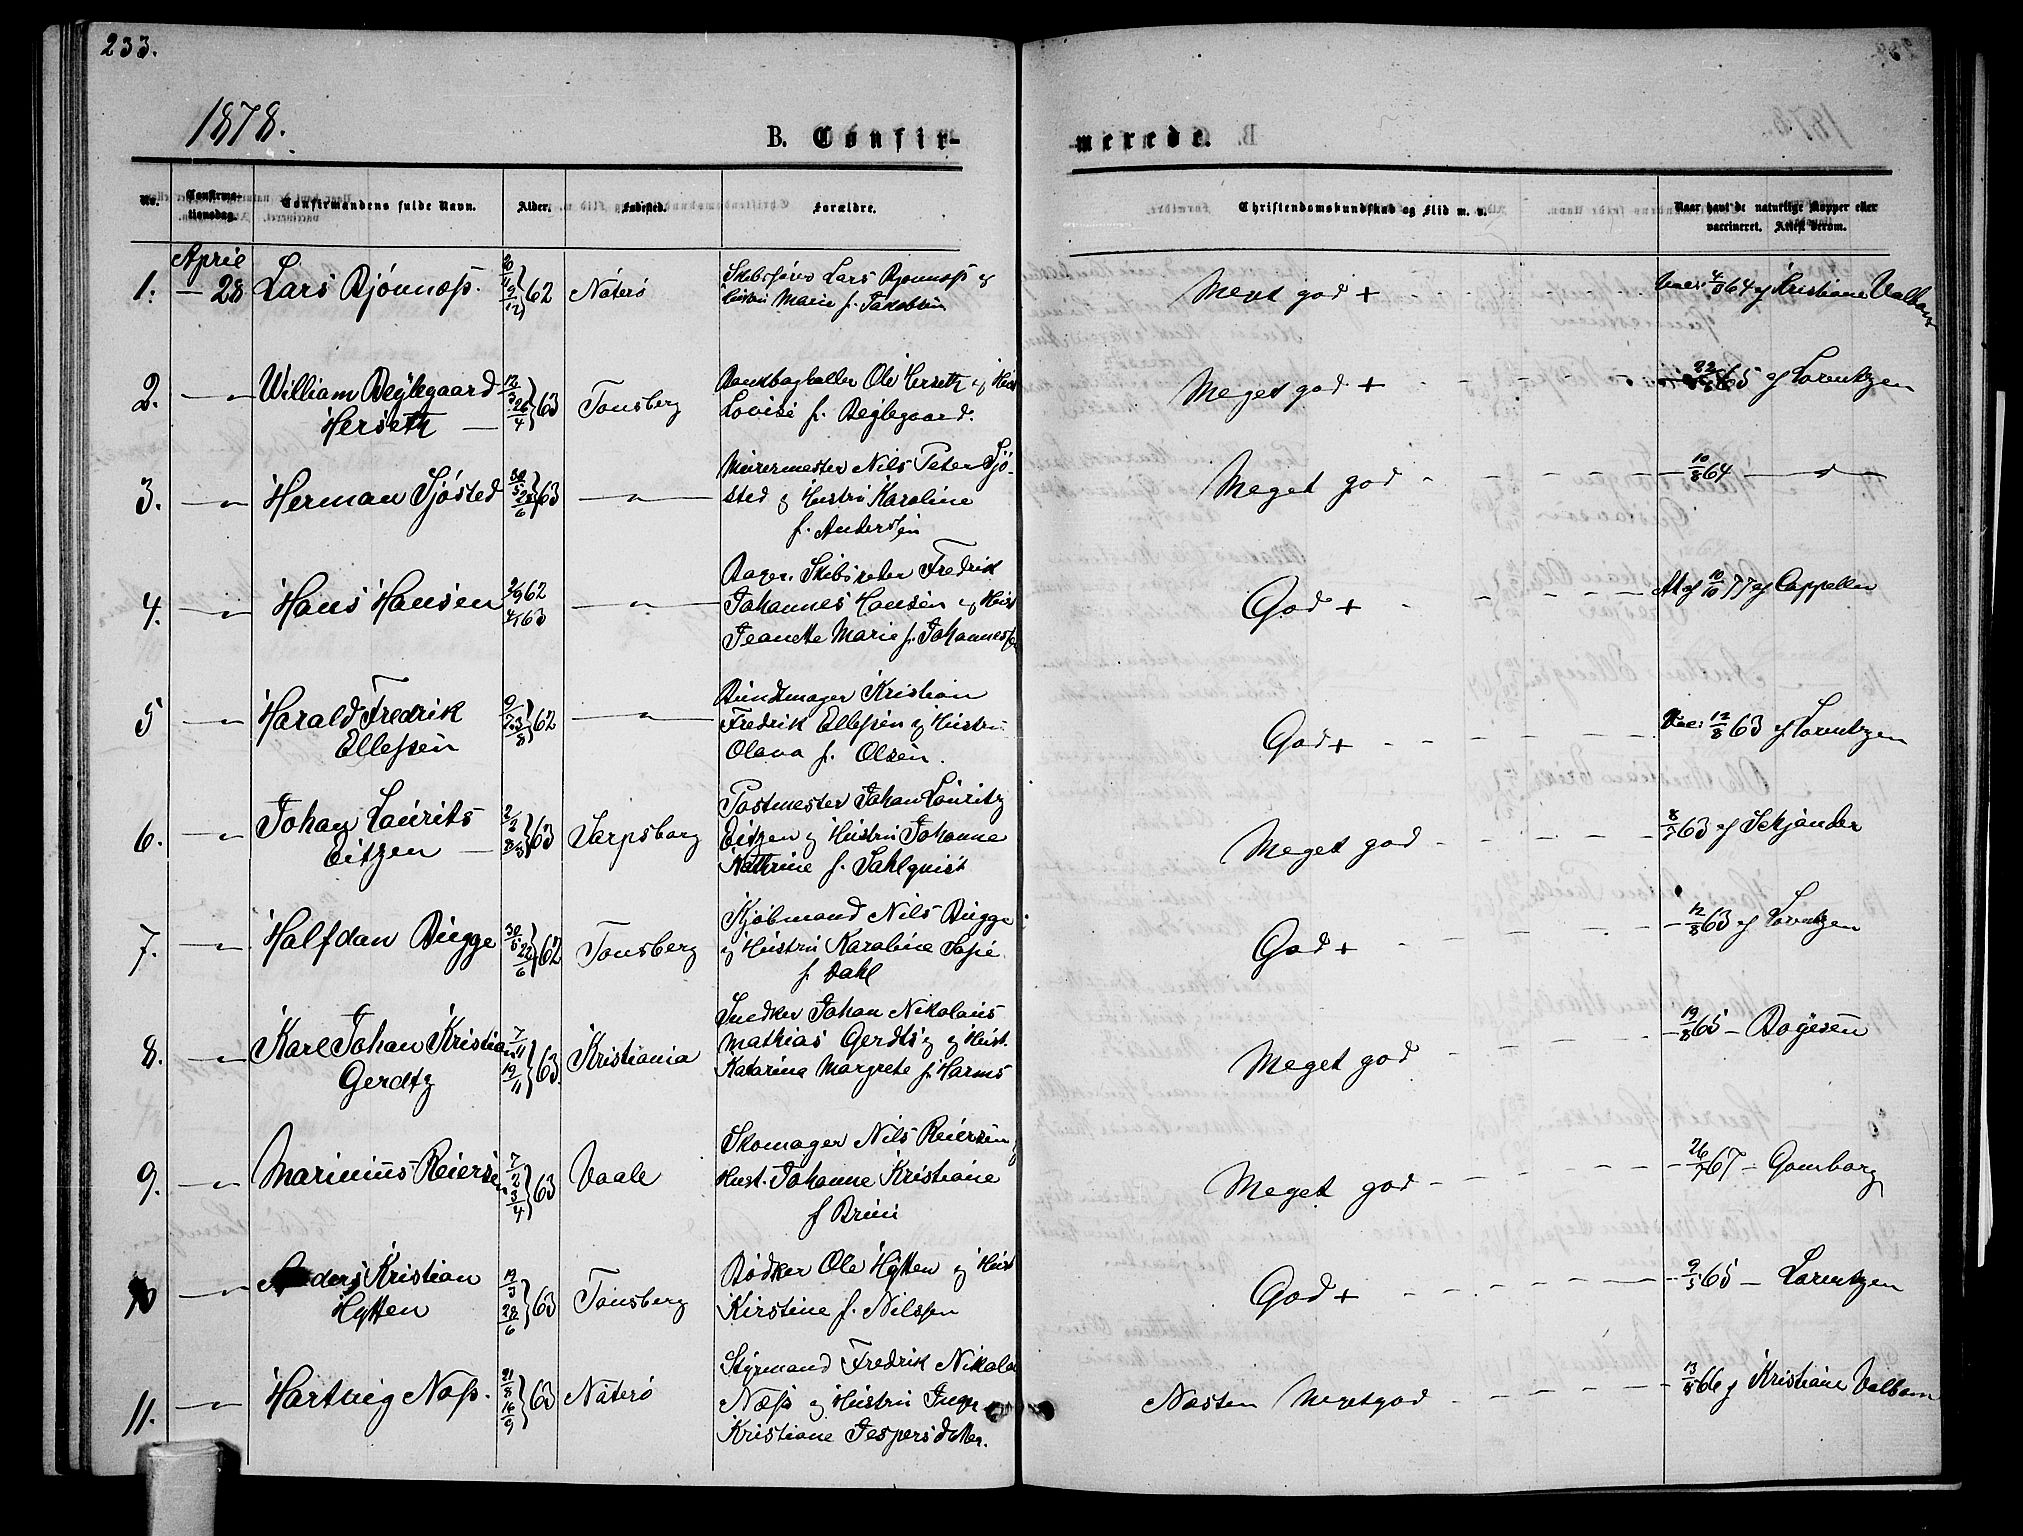 233.
1878.
B. Confir-
merede.
No.
Confirma-
tionsdag.
Confirmandens fulde Navn.
Alder.
Fødested.
Forældre.
Christendomskundskab og Flid m. v.
Naar havt de naturlige Kopper eller
vaccineret. Attest derom.
April
1. — 28 Lars Bjønnæss. 20/11 9/12 } 62 Nøterö
Skibsfører Lars Bjønnæss og
Hustru Marie f. Jakobsen
Meget god +
Vacc: 64 af Kristiane Valbom
2. — " William Bøjlegaard
Herseth — 12/3 26/4 } 63 Tønsberg
Bankbogholder Ole Herseth og Hust
Lovise f. Bøjlegaard.
Meget god +
65 af Lorentzen
3. — " Herman Sjösted 30/5 6 } 63 — " —
Murermester Nils Peter Sjö-
sted og Hustru Karoline
f. Anderssen
Meget god
— 10/8 64 — " —
4. — " Hans Hansen 2/9 62 4/1 63 — " —
Bager. Skibsreder Fredrik
Johannes Hansen og Hust
Jeanette Marie f. Johannessen
God +
At af 10/10 77 af Cappelen
5 — " Harald Fredrik
Ellefsen 9/7 23/8 } 62 — " —
Buntmager Kristian
Fredrik Ellefsen og Hustru
Olava f. Olsen.
God +
Vac: 12/8 63 af Lorentzen
6. — " Johan Laurits
Eitzen — 2/2 8/3 } 63 Sarpsborg
Postmester Johan Lauritz
Eitzen og Hustru Johanne
Kathrine f. Sahlqvist
Meget god
8/7 63 af Schjander
7. — " Halfdan Bugge 30/5 22/6 } 62 Tønsberg
Kjøbmand Nils Bugge
og Hustru Karoline Sofie
f. Dahl
God +
— 12/8 63 af Lorentzen
8. — " Karl Johan Kristian
Gerdtz 7/11 19/11 } 63. Kristiania
Snedker Johan Nikolaus
Mathias Gerdts og Hust.
Katarina Margrete f. Harms
Meget god
— 19/8 65 — Bøyesen
9. — " Marinius Reiersen 7/2 3/4 } 63 Vaale
Skomager Nils Reiersen og
Hust. Johanne Kristiane
f Bruu
Meget god
— 26/7 67 — Gomborg
10 — " Anders Kristian
Hytten 19/3 28/6 } 63 Tønsberg
Bødker Ole Hytten og Hust
Kirstine f. Nilssen
God +
— 9/5 65 — Lorentzen
11. — " Hartvig Næss. 21/8 16/9 } 63 Nøterö
Styrmand Fredrik Nikolai
Næss og Hustru Inger
Kristiane Jespersdatter.
Næsten Megetgod
— 13/8 66 af Kristiane Valbom